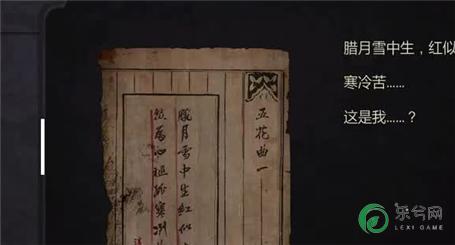 五花曲一
腊月雪中生红似
寒冷苦……
腊月雪中生，红似
寒冷苦……
这是我……？
乐兮网
LEXI GAME